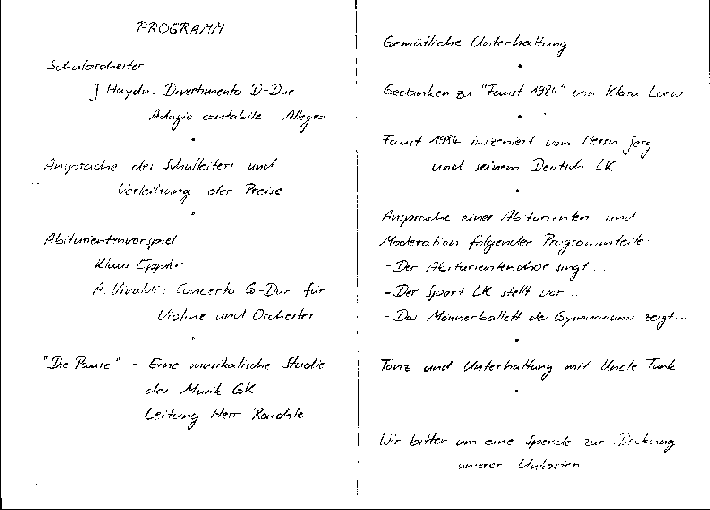 PROGRAMM
Schulorchester
J. Haydn: Divertimento D-Dur
Adagio cantabile Allegro
Ansprache des Schulleiters und
Verleihung der Preise
Abiturientenvorspiel
Klaus
A. Vivaldi: Concerto G-Dur für
Violine und Orchester
"Die Pause" - Eine musikalische Studie
des Musik GK
Leitung Herr
Gemütliche Unterhaltung
Gedanken zu "Faust 1984" von Klara
Faust 1984 inszeniert von Herrn Jerg
und seinem Deutsch LK
Ansprache eines Abiturienten und
Moderation folgender Programmteile:
- Der Abiturientenchor singt ...
- Der Sport LK stellt vor ...
- Das Männerballett des Gymnasiums zeigt ...
Tanz und Unterhaltung mit Uncle Tunk
Wir bitten um eine Spende zur Deckung
unserer Unkosten